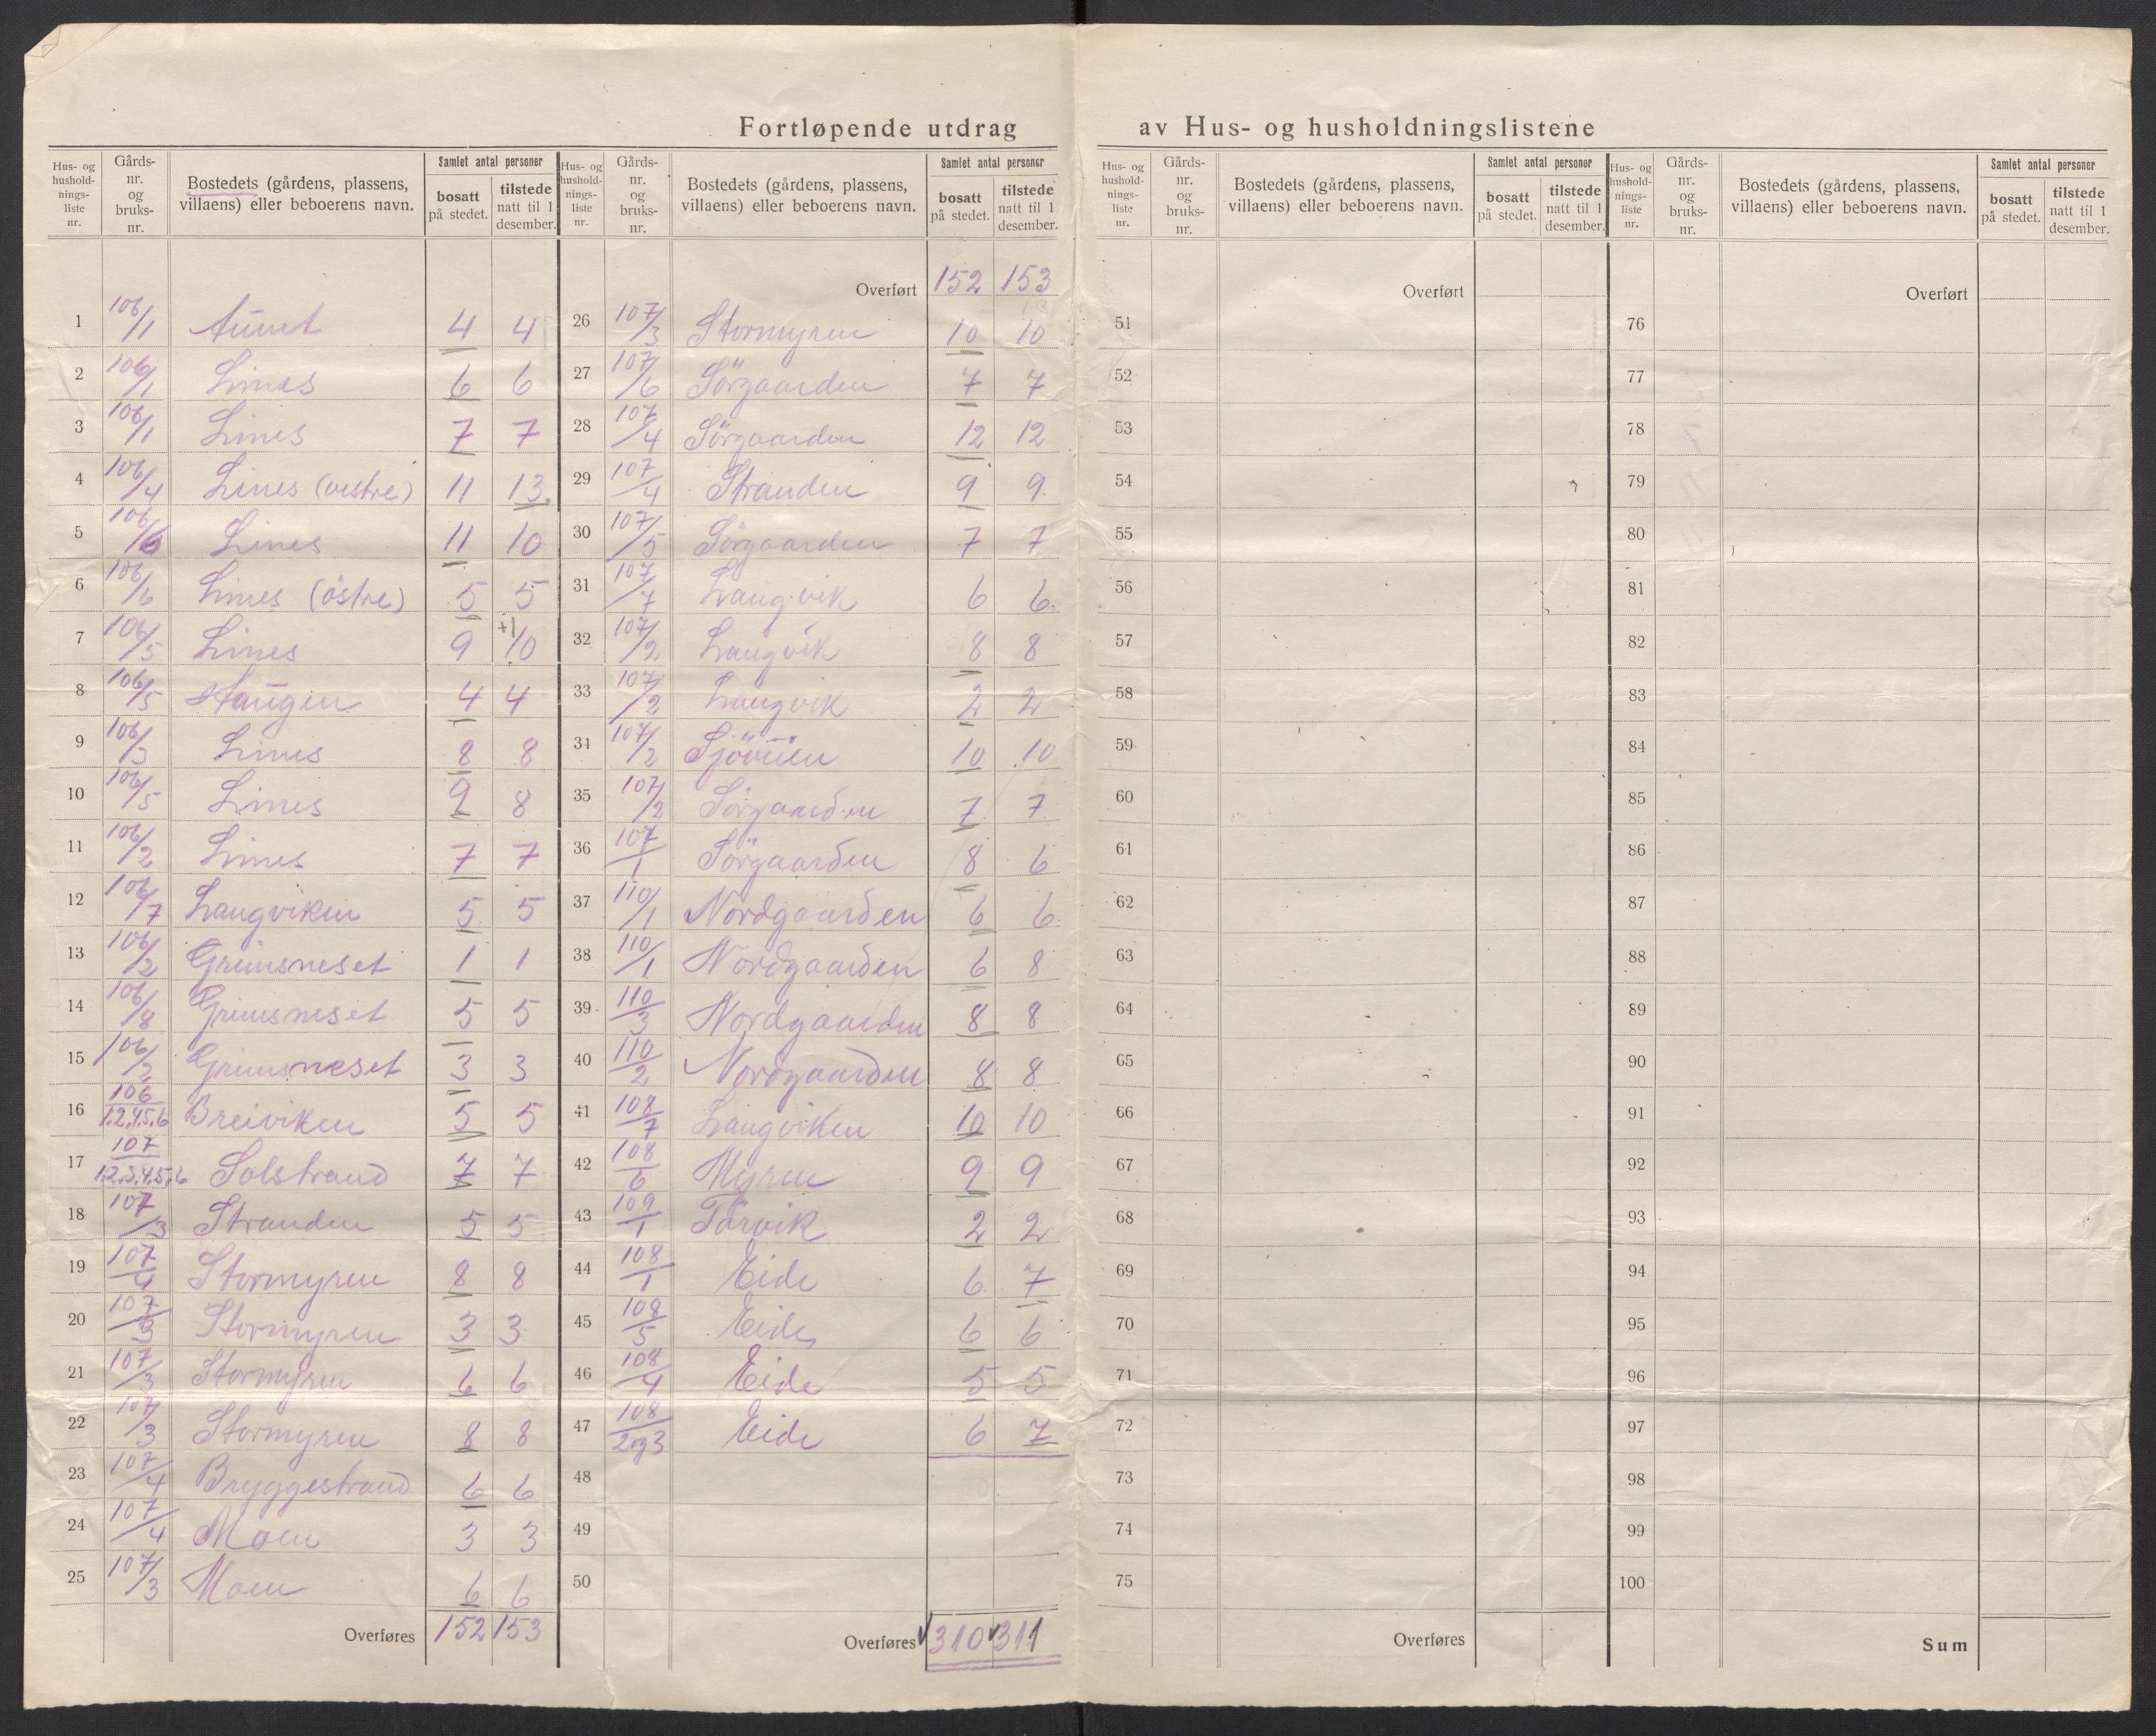 Fortløpende utdrag av Hus- og husholdningslistene
Hus- og hushold-nings-liste nr. | Gårds-nr. og bruks-nr. | Bostedets (gårdens, plassens, villaens) eller beboerens navn. | Samlet antal personer | bosatt på stedet. | tilstede natt til 1 desember.
1 106/1 Aunet 4 4
2 106/1 Lines 6 6
3 106/1 Lines 7 7
4 106/4 Lines (vestre) 11 13
5 106/6 Lines 11 10
6 106/6 Lines (östre) 5 5
7 106/5 Lines 9 +1 10
8 106/5 Haugen 4 4
9 106/3 Lines 8 8
10 106/5 Lines 9 8
11 106/2 Lines 7 7
12 106/7 Langviken 5 5
13 106/2 Grimsneset 1 1
14 106/8 Grimsneset 5 5
15 106/2 Grimsneset 3 3
16 106/1.2.4.5.6 Breiviken 5 5
17 107/1.2.3.4.5.6 Solstrand 7 7
18 107/3 Stranden 5 5
19 107/4 Stormyren 8 8
20 107/3 Stormyren 3 3
21 107/3 Stormyren 6 6
22 107/3 Stormyren 8 8
23 107/4 Bryggestrand 6 6
24 107/4 Moen 3 3
25 107/3 Moen 6 6
Overføres 152 153
Hus- og hushold-nings-liste nr. | Gårds-nr. og bruks-nr. | Bostedets (gårdens, plassens, villaens) eller beboerens navn. | Samlet antal personer | bosatt på stedet. | tilstede natt til 1 desember.
Overført 152 153
26 107/3 Stormyren 10 10
27 107/6 Sörgaarden 7 7
28 107/4 Sörgaarden 12 12
29 107/4 Stranden 9 9
30 107/5 Sörgaarden 7 7
31 107/7 Langvik 6 6
32 107/2 Langvik 8 8
33 107/2 Langvik 2 2
34 107/2 10 10
35 107/2 Sörgaarden 7 7
36 107/1 Sörgaarden 8 6
37 110/1 Nordgaarden 6 6
38 110/1 Nordgaarden 6 8
39 110/3 Nordgaarden 8 8
40 110/2 Nordgaarden 8 8
41 108/7 Langviken 10 10
42 108/6 Myren 9 9
43 109/1 Tårvik 2 2
44 108/1 Eide 6 7
45 108/5 Eide 6 6
46 108/4 Eide 5 5
47 108/2og3 Eide 6 7
48
49
50
Overføres 310 311
Hus- og hushold-nings-liste nr. | Gårds-nr. og bruks-nr. | Bostedets (gårdens, plassens, villaens) eller beboerens navn. | Samlet antal personer | bosatt på stedet. | tilstede natt til 1 desember.
Overført
51
52
53
54
55
56
57
58
59
60
61
62
63
64
65
66
67
68
69
70
71
72
73
74
75
Overføres
Hus- og hushold-nings-liste nr. | Gårds-nr. og bruks-nr. | Bostedets (gårdens, plassens, villaens) eller beboerens navn. | Samlet antal personer | bosatt på stedet. | tilstede natt til 1 desember.
Overført
76
77
78
79
80
81
82
83
84
85
86
87
88
89
90
91
92
93
94
95
96
97
98
99
100
Sum